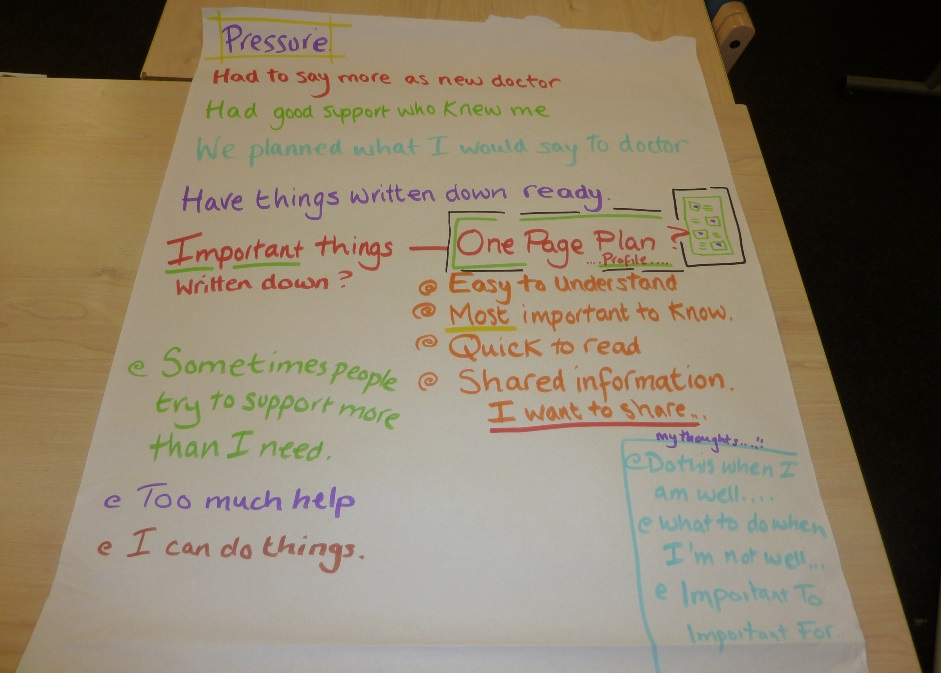 Pressure
Had to say more as new doctor
Had good support who knew me
We planned what I would say to doctor
Have things written down ready.
Important things — One Page Plan ?
....Profile.....
Written down?
Easy to Understand
Most important to know.
Quick to read
Shared information.
I want to share...
Sometimes people
try to support more
than I need.
Too much help
I can do things.
my thoughts....!!
Do this when I
am well....
What to do when
I'm not well...
Important To
Important For